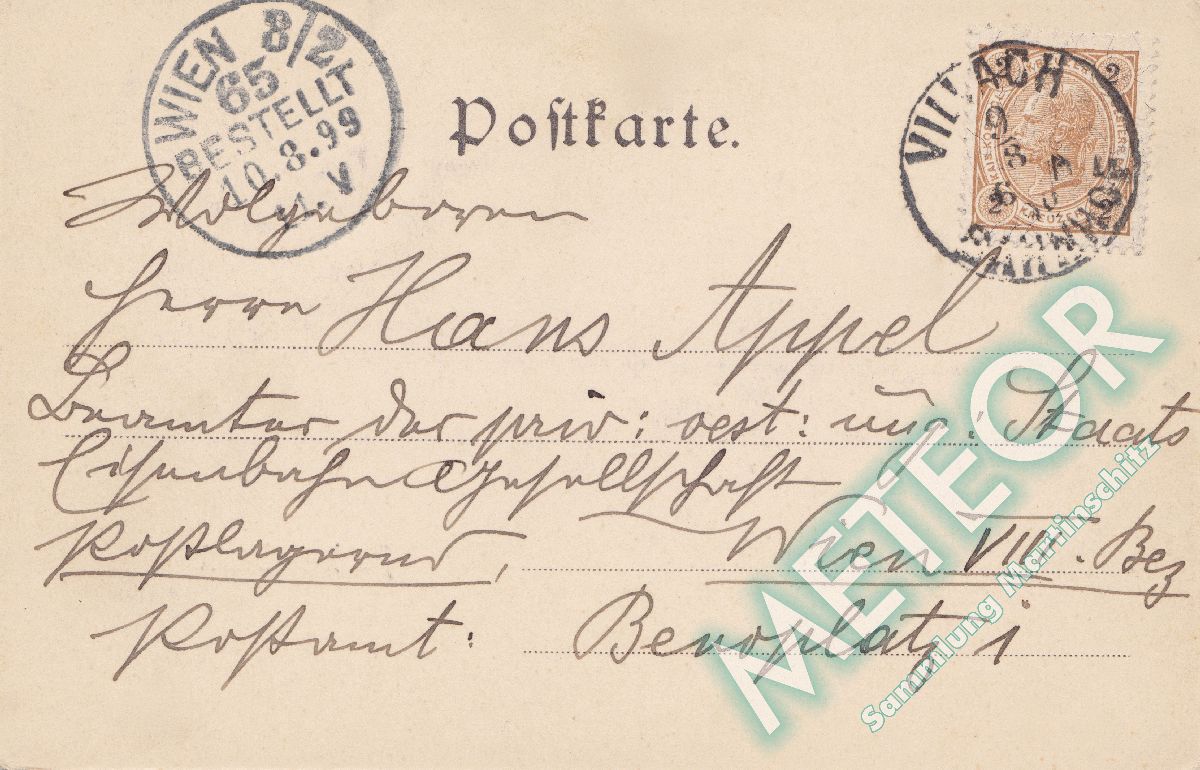 WIEN 8/2
65
BESTELLT
10.8.99
1.V
Postkarte.
VILLACH
9
8
2 2
2
Wolgeboren
Herrn Hans Appel
Beamter der priv: oest: ung: Staats
Eisenbahn Gesellschaft
Postlagernd, Wien VIII. Bez
Postamt: Bennoplatz 1
METEOR
Sammlung Martinschitz